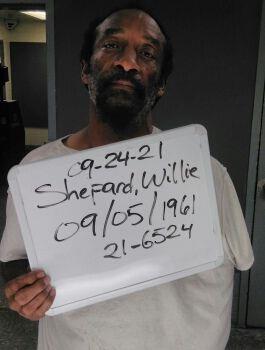 09-24-21
Shepard, Willie
09/05/1961
21-6524